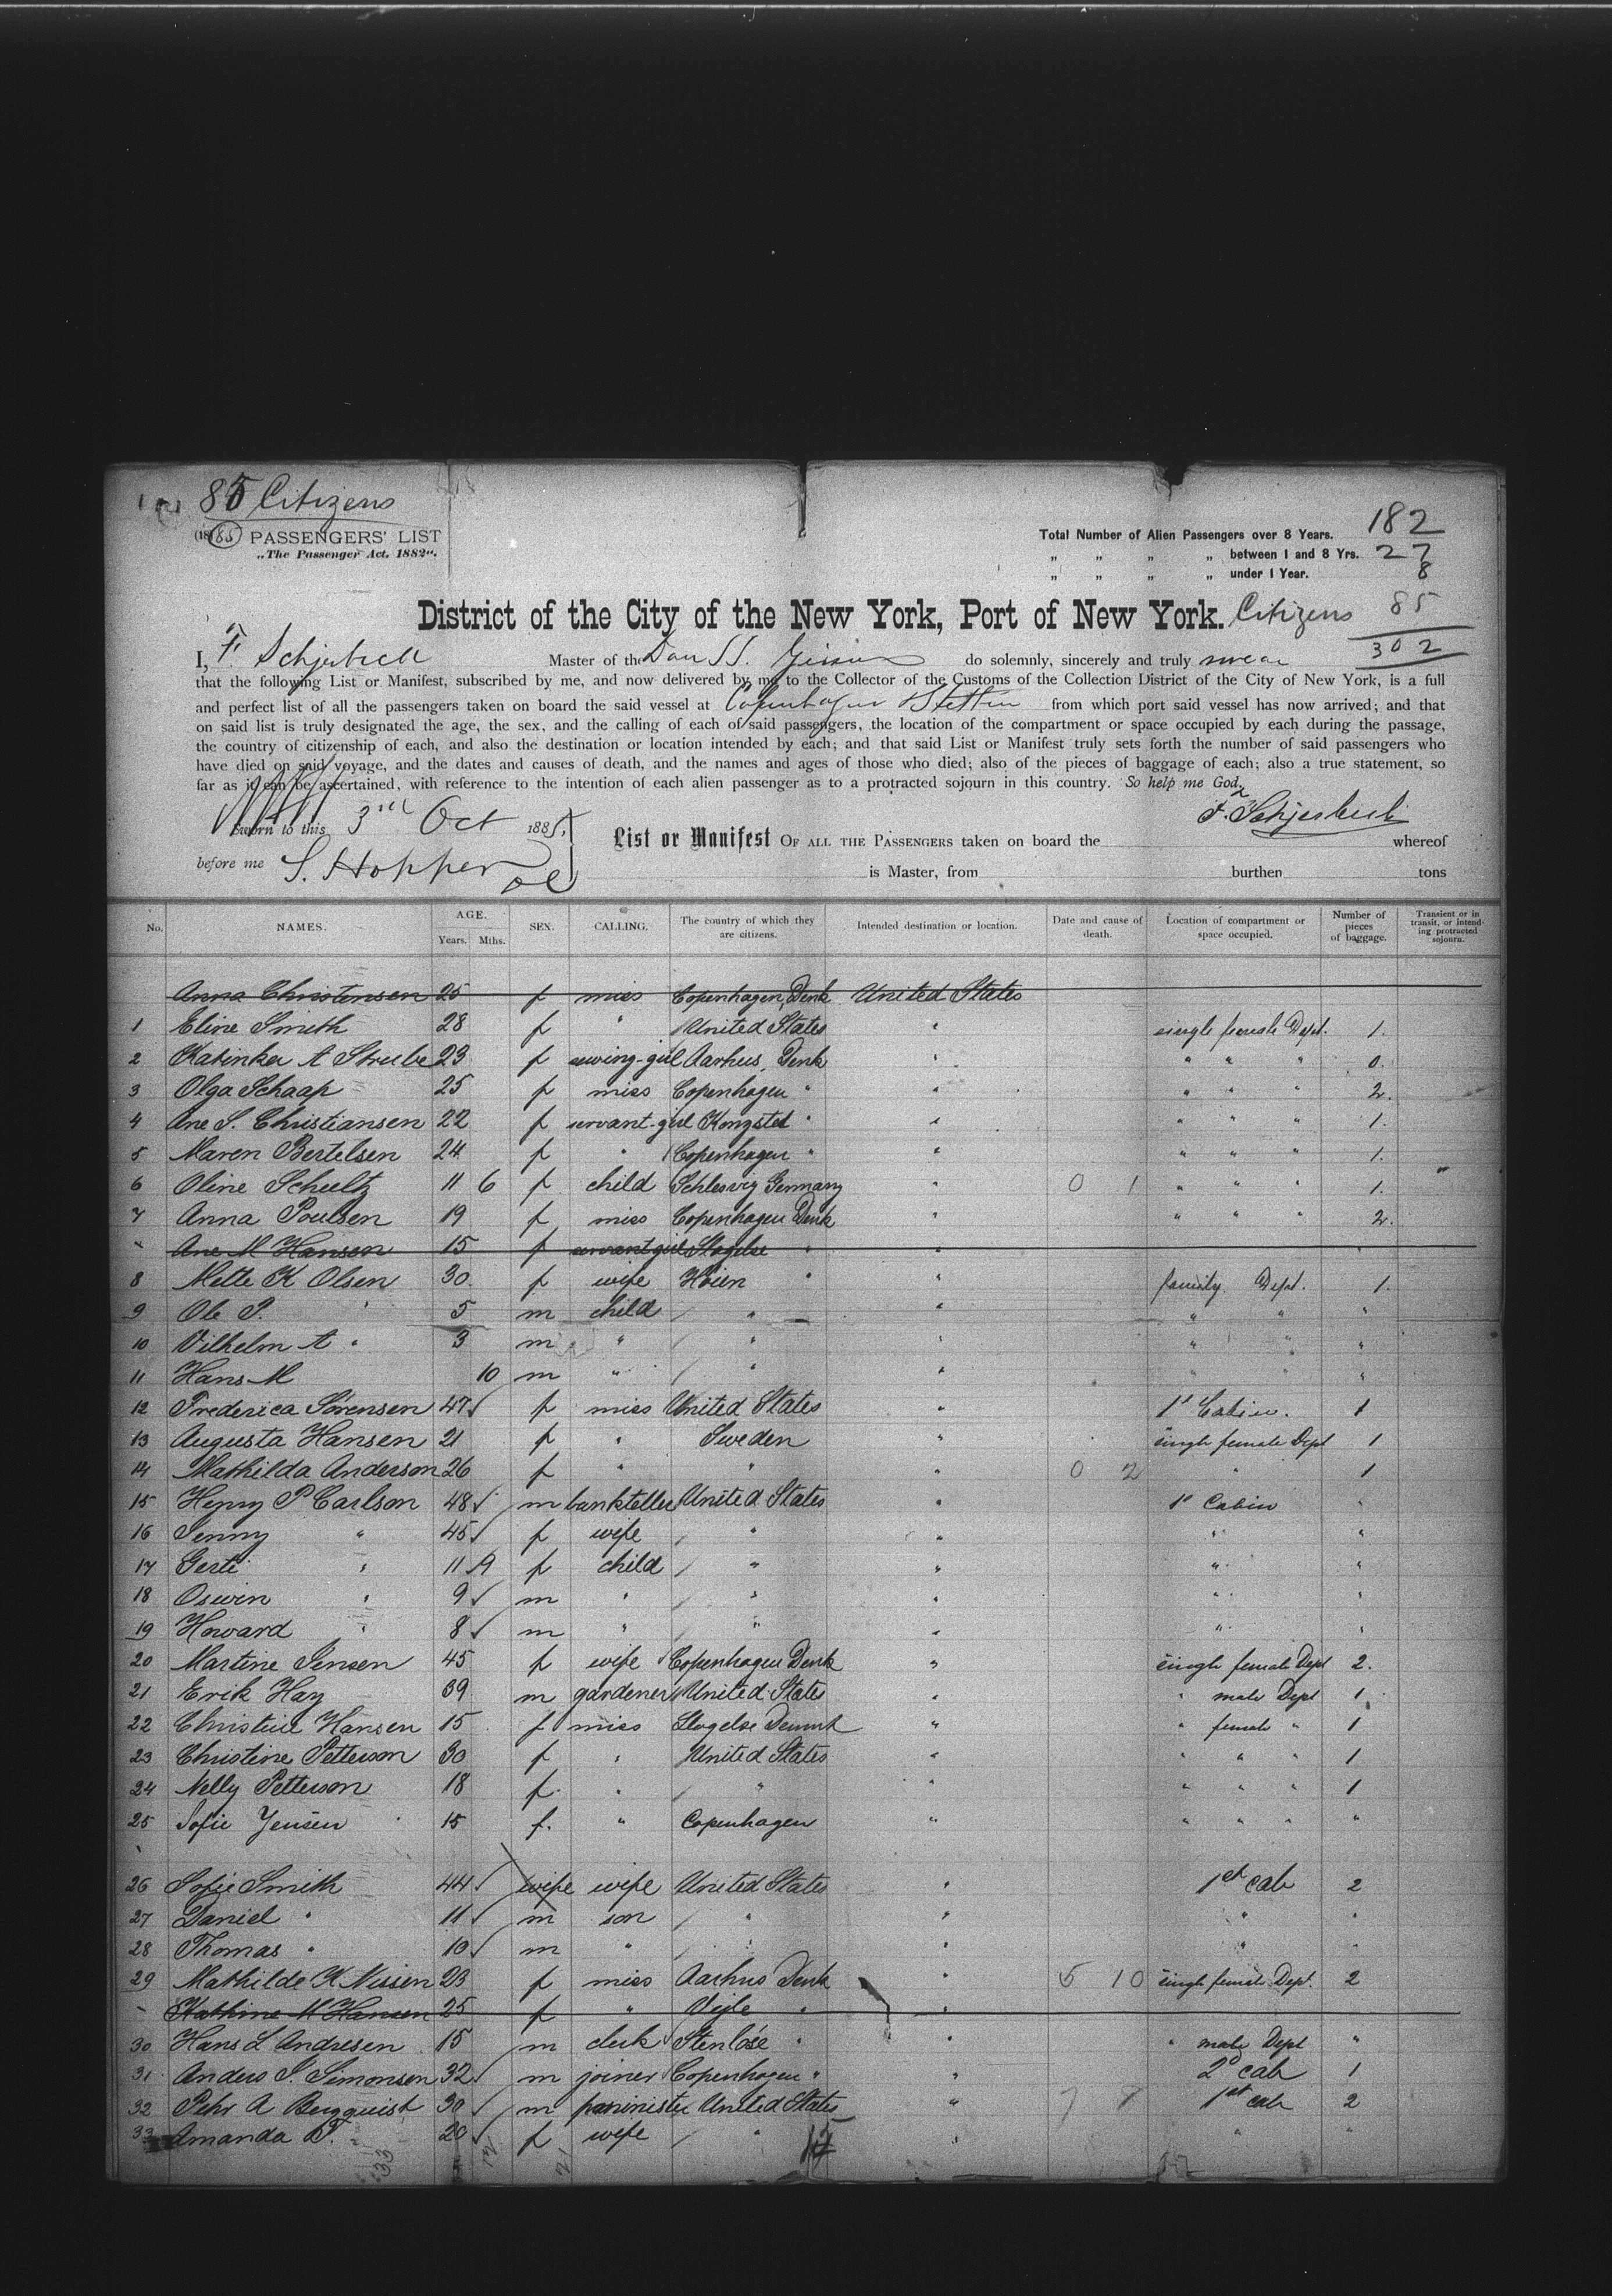 85 Citizens
(18 85) PASSENGERS' LIST
„The Passenger Act, 1882“.
Total Number of Alien Passengers over 8 Years. 182
„ „ „ „ between 1 and 8 Yrs. 27
„ „ „ „ under 1 Year. 8
District of the City of the New York, Port of New York. Citizens 85
302
I, F. Schjerbeck Master of the Dan SS. do solemnly, sincerely and truly swear
that the following List or Manifest, subscribed by me, and now delivered by me to the Collector of the Customs of the Collection District of the City of New York, is a full
and perfect list of all the passengers taken on board the said vessel at Copenhagen Stettin from which port said vessel has now arrived; and that
on said list is truly designated the age, the sex, and the calling of each of said passengers, the location of the compartment or space occupied by each during the passage,
the country of citizenship of each, and also the destination or location intended by each; and that said List or Manifest truly sets forth the number of said passengers who
have died on said voyage, and the dates and causes of death, and the names and ages of those who died; also of the pieces of baggage of each; also a true statement, so
far as it can be ascertained, with reference to the intention of each alien passenger as to a protracted sojourn in this country. So help me God.
F. Schjerbeck
Sworn to this 3rd Oct 1885,
before me S. Hopper
List or Manifest OF ALL THE PASSENGERS taken on board the whereof
is Master, from burthen tons
No. NAMES. AGE. Years. Mths. SEX. CALLING. The country of which they are citizens. Intended destination or location. Date and cause of death. Location of compartment or space occupied. Number of pieces of baggage. Transient or in transit, or intending protracted sojourn.
Anna Christensen 25 f miss Copenhagen, Denk United States
1 Eline Smith 28 f " United States " single female Dept. 1.
2 Katinka A Strube 23 f sewing-girl Aarhus, Denk " " " " 0.
3 Olga Schaap 25 f miss Copenhagen " " " " " 2.
4 Ane S. Christiansen 22 f servant-girl Kongsted " " " " " 1.
5 Maren Bertelsen 24 f " Copenhagen " " " " " 1.
6 Oline Schultz 11 6 f child Schlesvig Germany " 0 1 " " " 1. "
7 Anna Poulsen 19 f miss Copenhagen Denk " " " " 2.
Ane M Hansen 15 f servant girl Slagelse " "
8 Mette K Olsen 30 f wife Hoien " " family Dept. 1.
9 Ole P. " 5 m child " " " " "
10 Vilhelm A " 3 m " " " " " "
11 Hans M 10 m " " " " " "
12 Frederica Sörensen 47 f miss United States " 1st Cabin. 1
13 Augusta Hansen 21 f " Sweden " single female Dept 1
14 Mathilda Anderson 26 f " " " 0 2 " 1
15 Henry P Carlson 48 m bankteller United States " 1st Cabin "
16 Jenny " 45 f wife " " " "
17 Gerti " 11 9 f child " " " "
18 Oswin " 9 m " " " " "
19 Howard " 8 m " " " " "
20 Martine Jensen 45 f wife Copenhagen Denk " single female Dept 2.
21 Erik Hay 39 m gardener United States " " male Dept 1
22 Christine Hansen 15 f miss Slagelse Denmk " " female " 1
23 Christine Petterson 30 f " United States " " " " 1
24 Nelly Petterson 18 f. " " " " " " 1
25 Sofie Jensen 15 f. " Copenhagen " " " " "
26 Sofie Smith 44 wife wife United States " 1st cab 2
27 Daniel " 11 m son " " " "
28 Thomas " 10 m " " " " "
29 Mathilde K Nissen 23 f miss Aarhus Denk " 5 10 single female Dept. 2
Kathrine M Hansen 25 f " Vejle " "
30 Hans L Andresen 15 m clerk Stenlöse " " " male Dept "
31 Anders S. Simonsen 32 m joiner Copenhagen " " 2d cab 1
32 Pehr A Bergquist 30 m United States " 1st cab 2
33 Amanda B. " 20 f wife " " " "
33